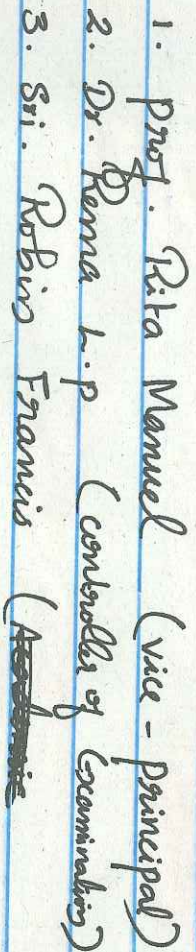 1. Prof. Rita Manuel (vice-principal)
2. Dr. Renna L.P (controller of Examination)
3. Sri. Robin Francis (